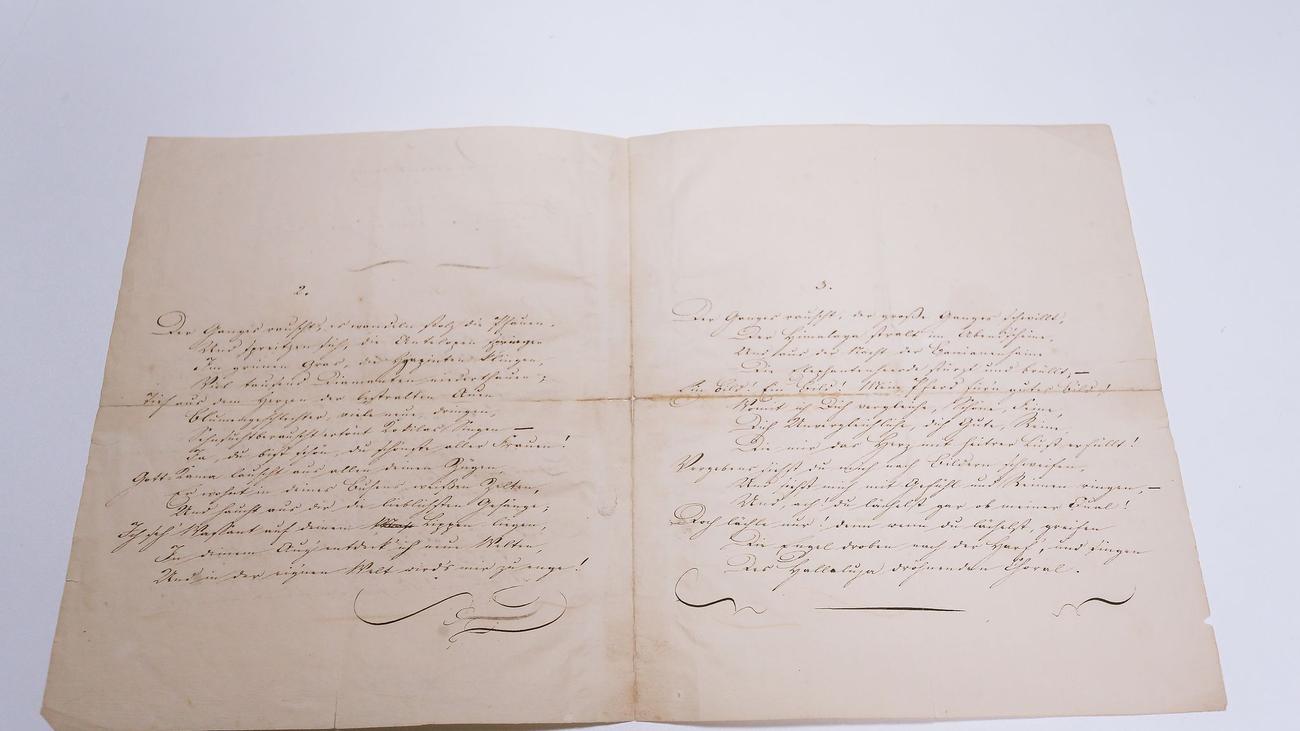 2.
Der Ganges rauscht, es wandeln stolz die Pfauen,
Und spreitzen sich, die Antelopen springen
Im grünen Gras, die Hyazinten klingen,
Viel tausend Diamanten niederthauen;
Tief aus dem Herzen der bestralten Auen
Blumengeschlechter, viele neue, dringen,
Sehnsuchtberauscht ertönt Kokilas Singen —
Ja, du bist schön, du schönste aller Frauen!
Gott Kama lauscht aus allen deinen Zügen,
Er wohnt in deines Busens weißen Zelten,
Und haucht aus dir die lieblichsten Gesänge;
Ich sah Wassant auf deinen Lippen liegen,
In deinem Aug' entdeck' ich neue Welten,
Und in der eignen Welt wird's mir zu enge!
3.
Der Ganges rauscht, der große Ganges schwillt,
Der Himalaya stralt im Abendscheine,
Und aus der Nacht der Banianenhaine
Die Elephantenheerde stürzt und brüllt, —
Ein Bild! Ein Bild! Mein Pferd für'n gutes Bild!
Womit ich Dich vergleiche, Schöne, Feine,
Dich Unvergleichliche, dich Gute, Reine,
Die mir das Herz mit heitrer Lust erfüllt!
Vergebens siehst du mich nach Bildern schweifen,
Und siehst mich mit Gefühl und Reimen ringen, —
Und, ach! du lächelst gar ob meiner Qual!
Doch lächle nur! denn wenn du lächelst, greifen
Die Engel droben nach der Harf', und singen
Des Hallaluja dröhnenden Choral.